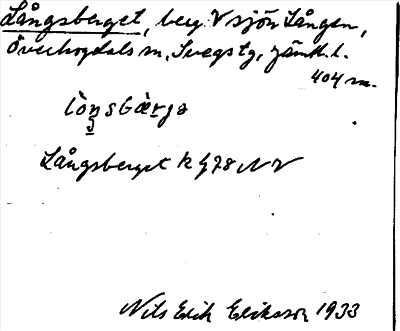 Långsberget, berg V sjön Lången,
Överhogdals sn, Svegs tg, Jämtl. l.
404 m.
lòŋsbàrjə
Långsberget k G78 NV
Nils Erik Eriksson 1933